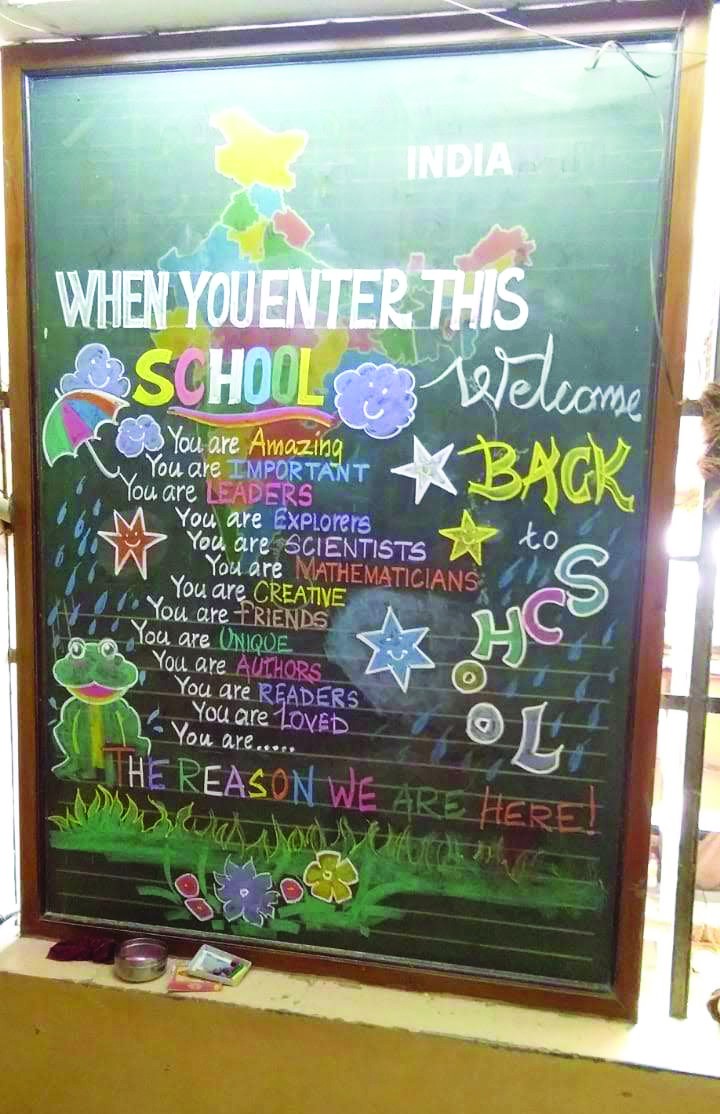 INDIA
WHEN YOU ENTER THIS
SCHOOL
Welcome
BACK
to
SCHOOL
You are Amazing
You are IMPORTANT
You are LEADERS
You are EXPLORERS
You are SCIENTISTS
You are MATHEMATICIANS
You are CREATIVE
You are FRIENDS
You are UNIQUE
You are AUTHORS
You are READERS
You are LOVED
You are.....
THE REASON WE ARE HERE!